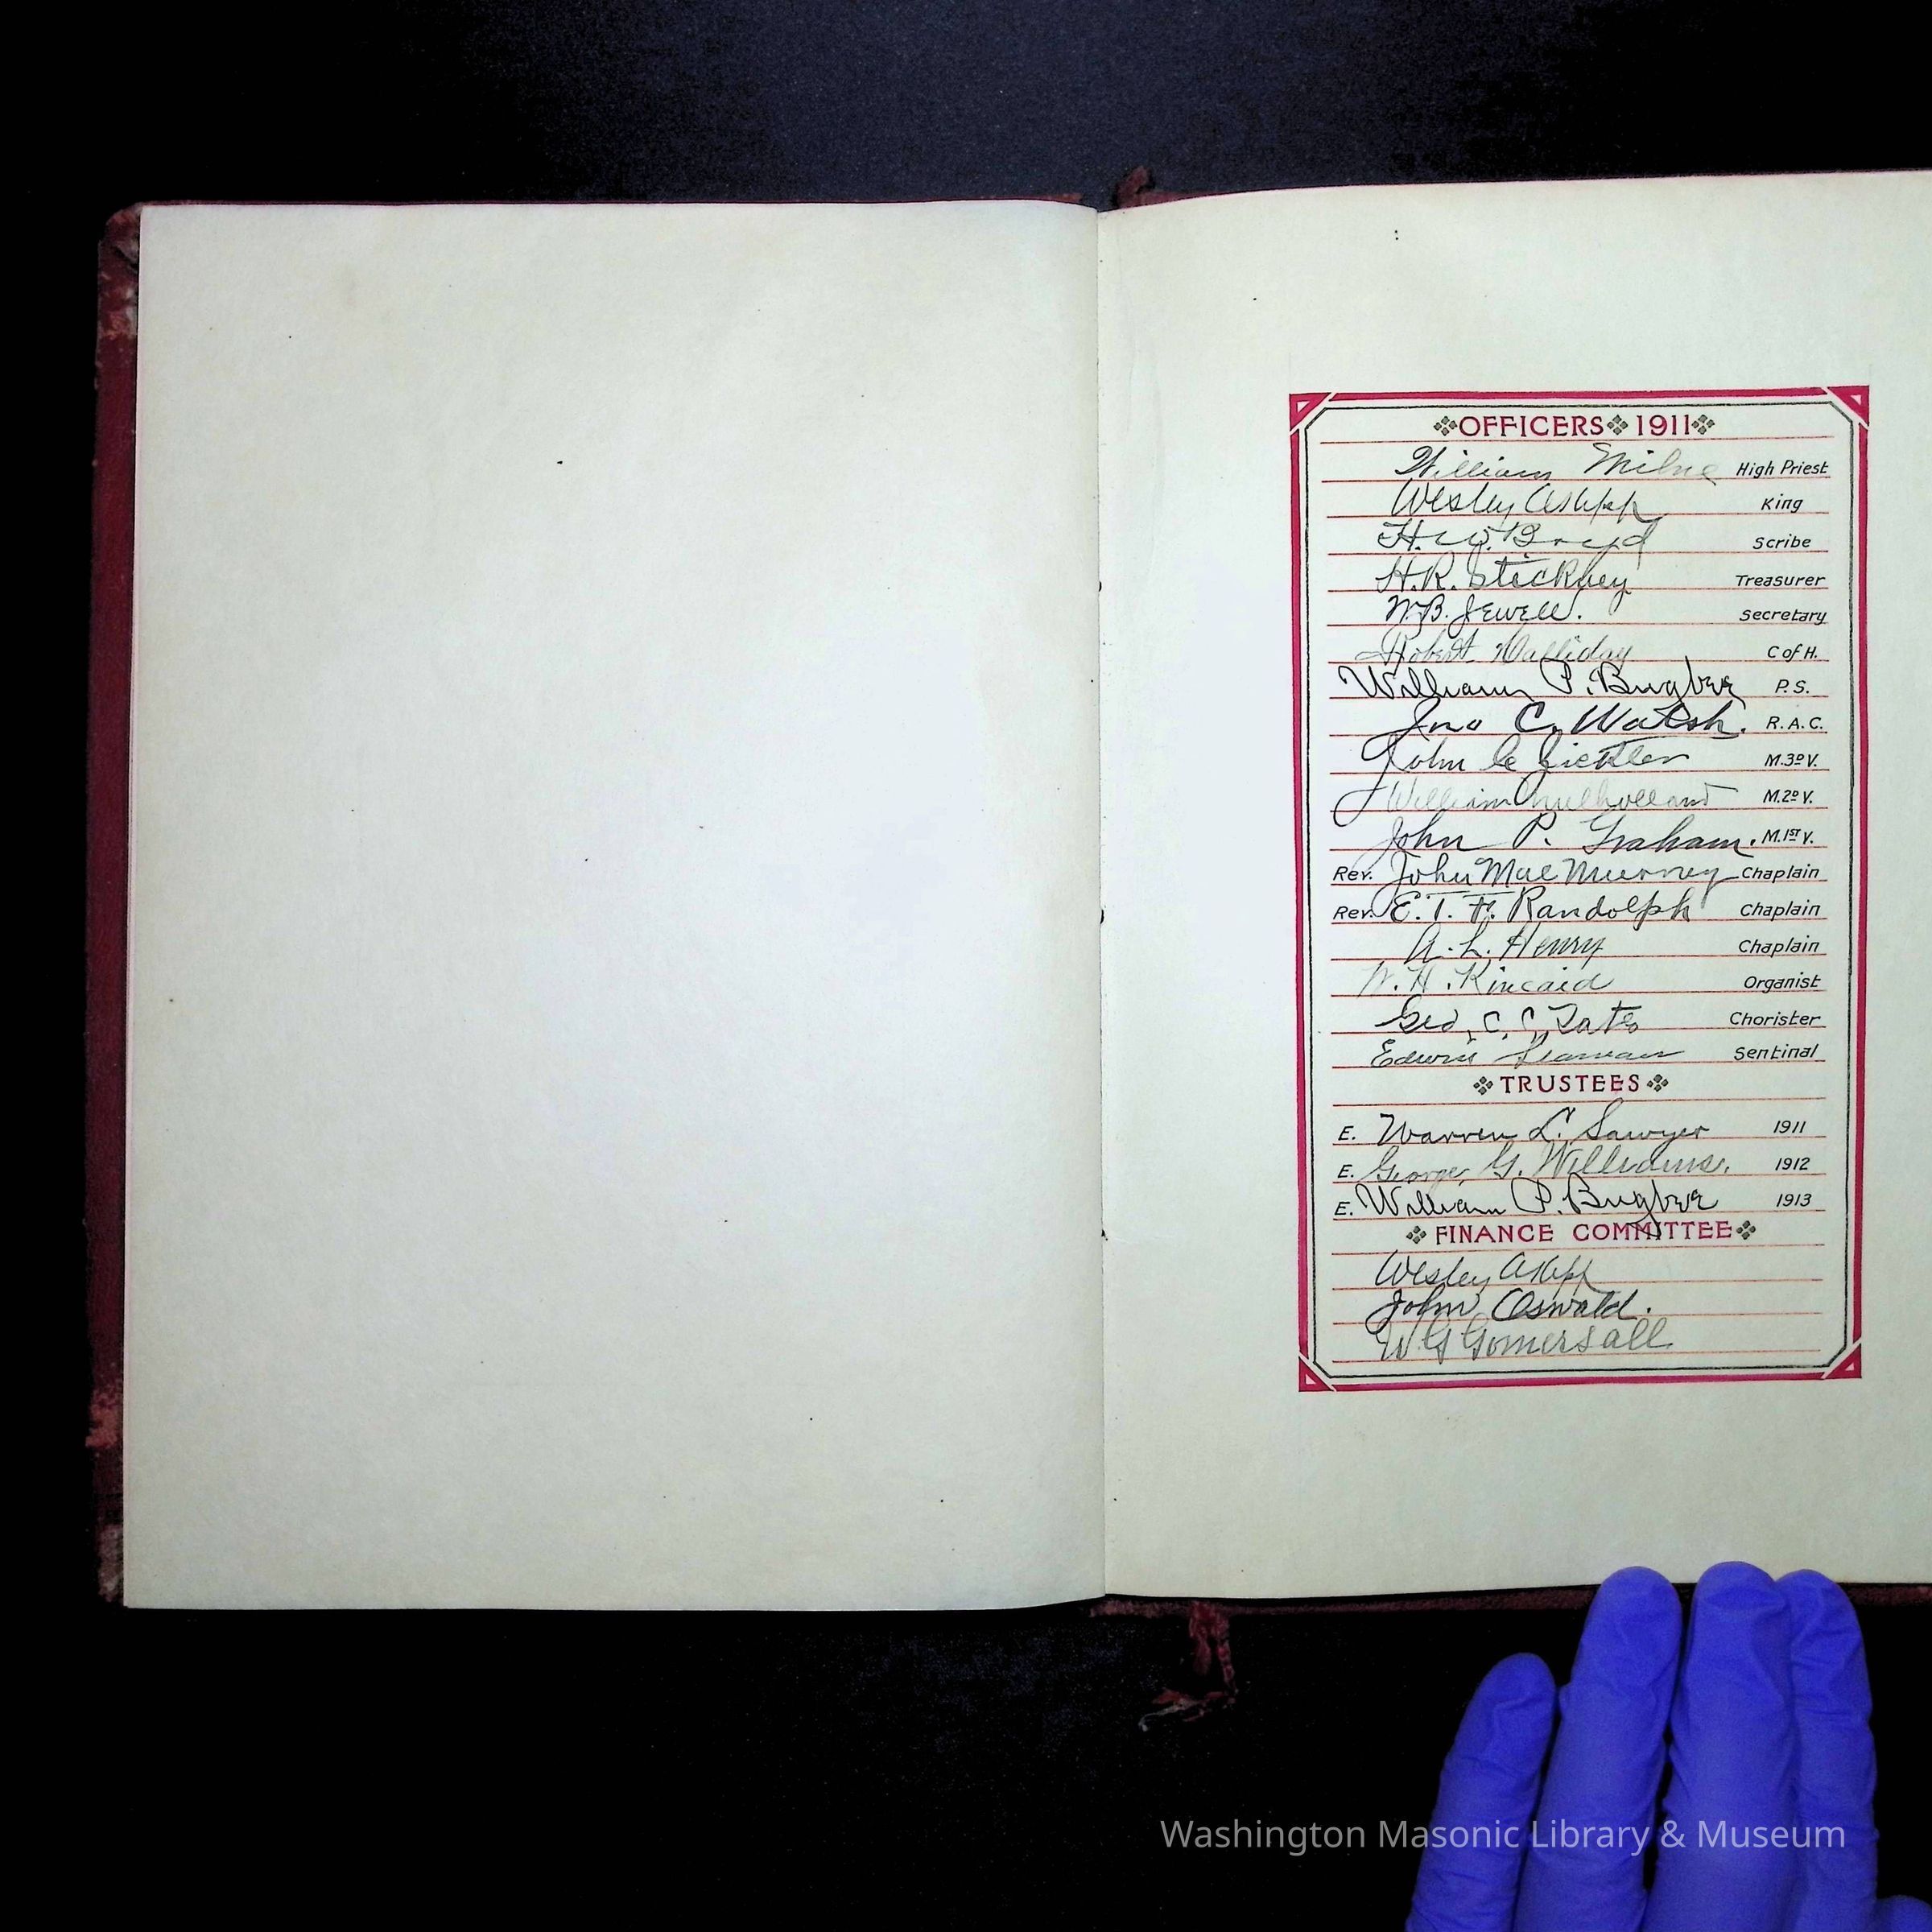 OFFICERS 1911
William Milne High Priest
Wesley King
H. W. Boyd Scribe
H. R. Stickney Treasurer
W. B. Jewell. Secretary
Robert Halliday C of H.
William P. Bugbee P. S.
Jno C. Walsh. R. A. C.
John M. 3D V.
William Mulholland M. 2D V.
John P. Graham. M. 1ST V.
Rev. John Mac Murray Chaplain
Rev. E. T. F. Randolph Chaplain
A. L. Henry Chaplain
W. H. Kincaid Organist
Geo. C. C. Tate Chorister
Edwin Sentinal
TRUSTEES
E. Warren L. Sawyer 1911
E. George G. Williams. 1912
E. William P. Bugbee 1913
FINANCE COMMITTEE
Wesley
John Oswald.
W G Gomersall
Washington Masonic Library & Museum